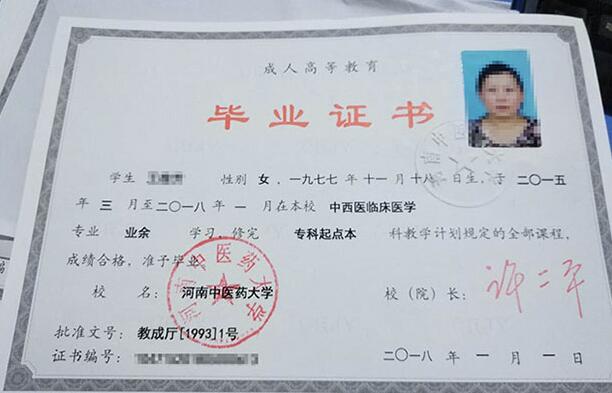 成人高等教育
毕业证书
学生 性别 女，一九七七年十一月十八日生，于二〇一五
年三月至二〇一八年一月在本校 中西医临床医学
专业 业余 学习，修完 专科起点本 科教学计划规定的全部课程，
成绩合格，准予毕业。
校 名： 河南中医药大学
校（院）长： 许二平
批准文号： 教成厅[1993]1号
证书编号：
二〇一八年一月一日
河南中医药大学